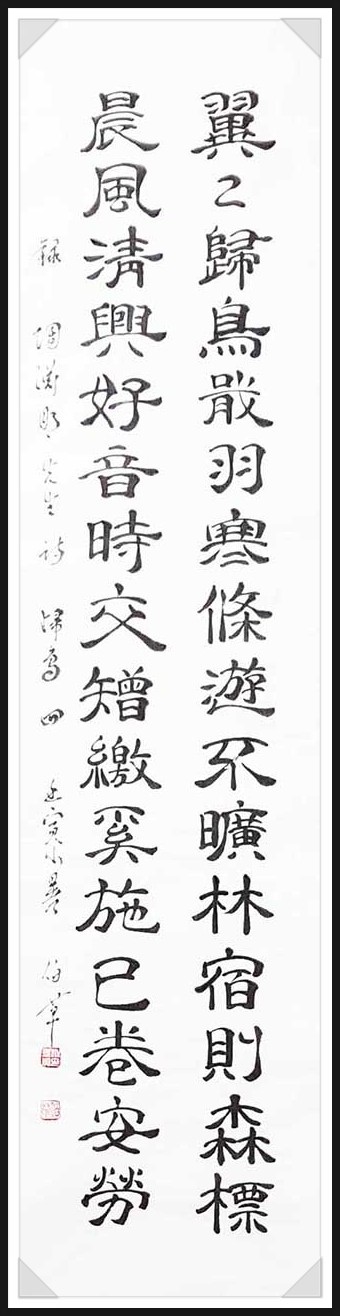 翼〻歸鳥戢羽寒條遊不曠林宿則森標
晨風清興好音時交矰繳奚施已卷安勞
錄 陶淵明先生詩 歸鳥四 壬寅小暑